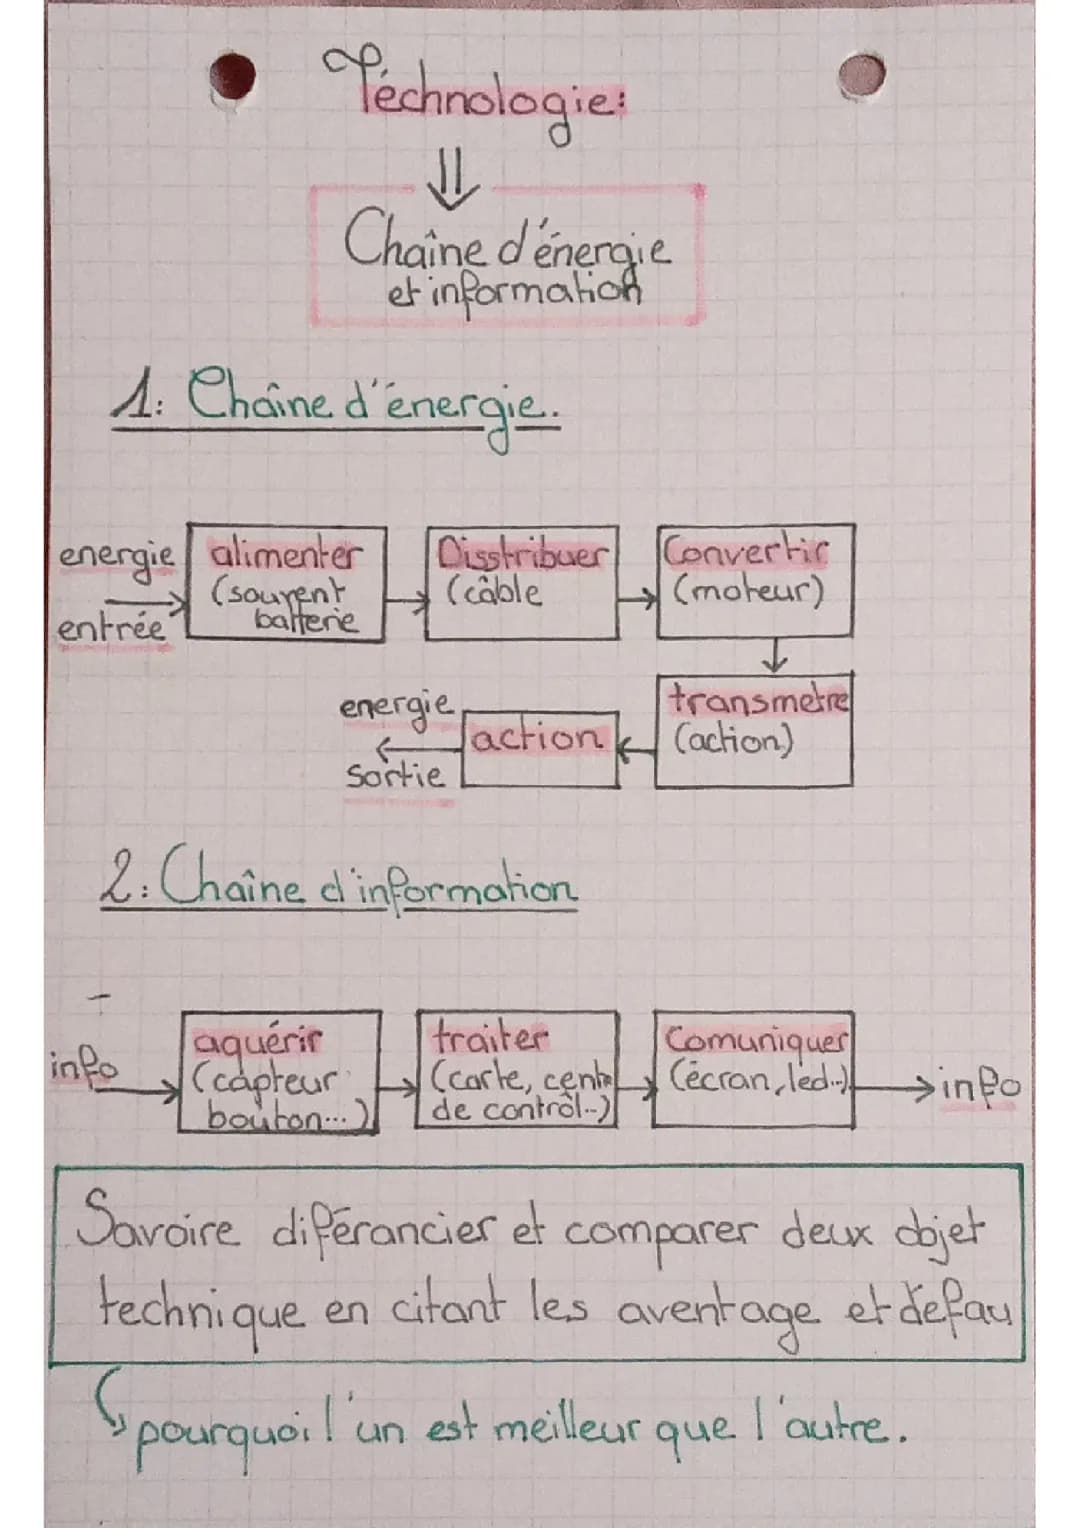 Téchnologie:
Chaîne d'énergie
et information
1: Chaîne d'énergie.
energie
entrée
alimenter
(souvent
batterie
Disstribuer
(câble
Convertir
(moteur)
transmetre
(action)
action
energie
sortie
2: Chaîne d'information
info
aquérir
(capteur
bouton...)
traiter
(carte, centre
de contrôl..)
Comuniquer
(écran, led..)
info
Savoire diférancier et comparer deux objet
technique en citant les aventage et defau
pourquoi l'un est meilleur que l'autre.